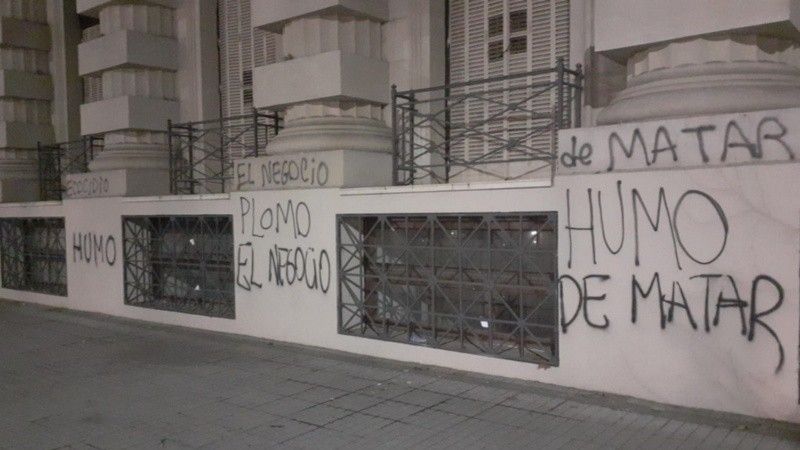 ECOCIDIO
EL NEGOCIO
de MATAR
HUMO
PLOMO
EL NEGOCIO
HUMO
DE MATAR